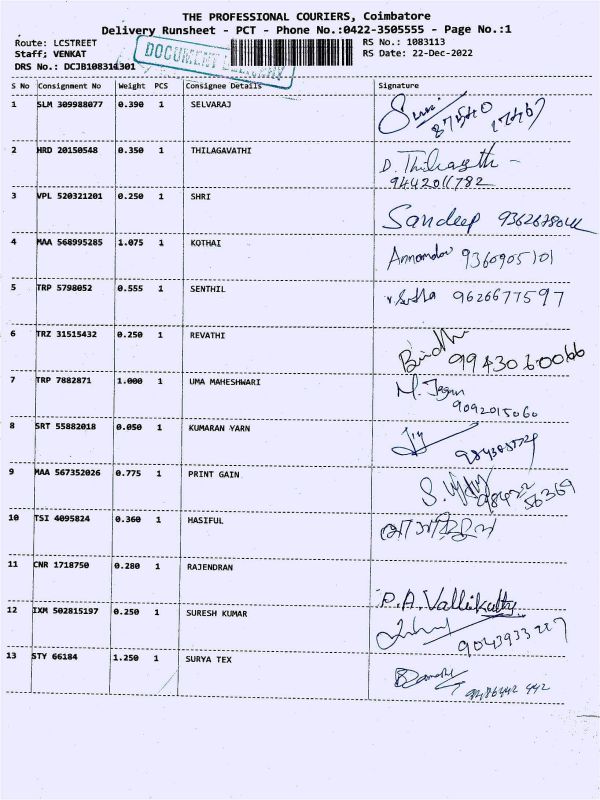 THE PROFESSIONAL COURIERS, Coimbatore
Delivery Runsheet - PCT - Phone No.:0422-3505555 - Page No.:1
Route: LCSTREET RS No.: 1083113
Staff; VENKAT RS Date: 22-Dec-2022
DRS No.: DCJB108311301
DOCUMENT
S No Consignment No Weight PCS Consignee Details Signature
1 SLM 309988077 0.390 1 SELVARAJ
87540 17467
2 HRD 20150548 0.350 1 THILAGAVATHI
D. Thilagavathi
9442011782
3 VPL 520321201 0.250 1 SHRI
Sandeep
4 MAA 568995285 1.075 1 KOTHAI
9360905101
5 TRP 5798052 0.555 1 SENTHIL
9626677597
6 TRZ 31515432 0.250 1 REVATHI
Bindhu
9943060066
7 TRP 7882871 1.000 1 UMA MAHESHWARI
M. Jagan
9092015060
8 SRT 55882018 0.050 1 KUMARAN YARN
9 MAA 567352026 0.775 1 PRINT GAIN
10 TSI 4095824 0.360 1 HASIFUL
11 CNR 1718750 0.280 1 RAJENDRAN
P.A. Vallikutty
12 IXM 502815197 0.250 1 SURESH KUMAR
13 STY 66184 1.250 1 SURYA TEX